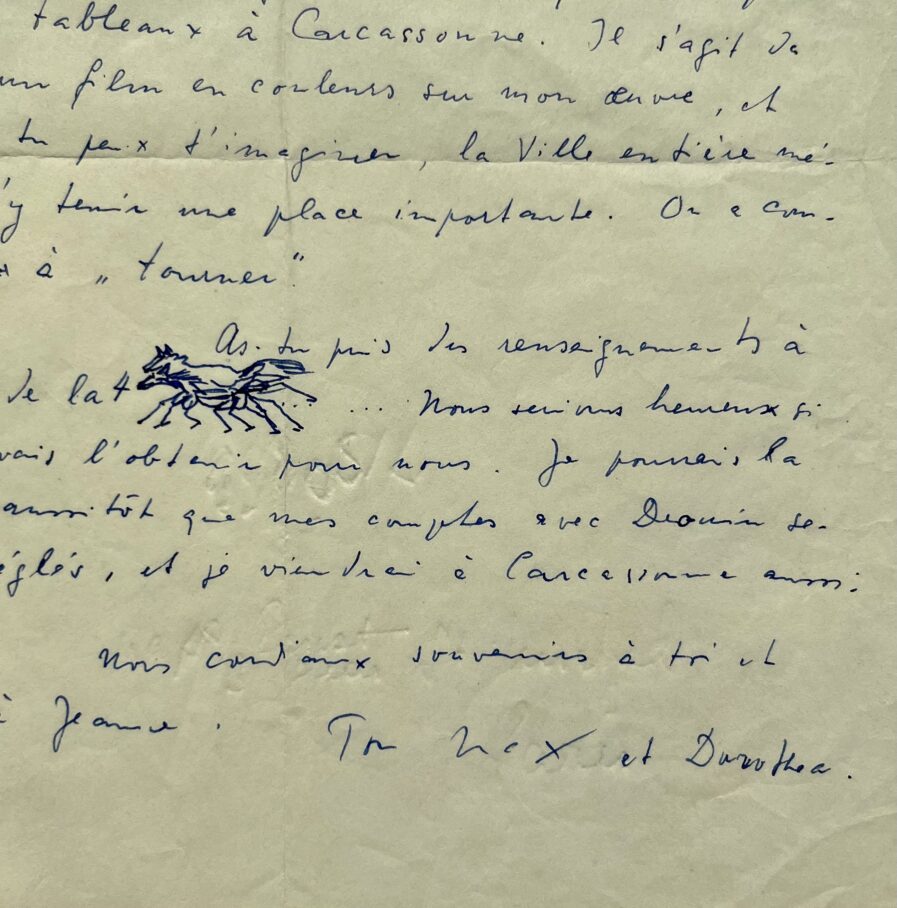 tableaux à Carcassonne. Il s'agit da
un film en couleurs sur mon œuvre, et
tu peux t'imaginer, la Ville entière mé-
'y tenir une place importante. On a com-
à „tourner".
As-tu pris des renseignements à
de la 4 ... Nous serions heureux si
vais l'obtenir pour nous. Je pourrais la
aussitôt que mes comptes avec Drouin se-
églés, et je viendrai à Carcassonne aussi-
Nos cordiaux souvenirs à toi et
à Jeanne.
Ton Max et Dorothea.